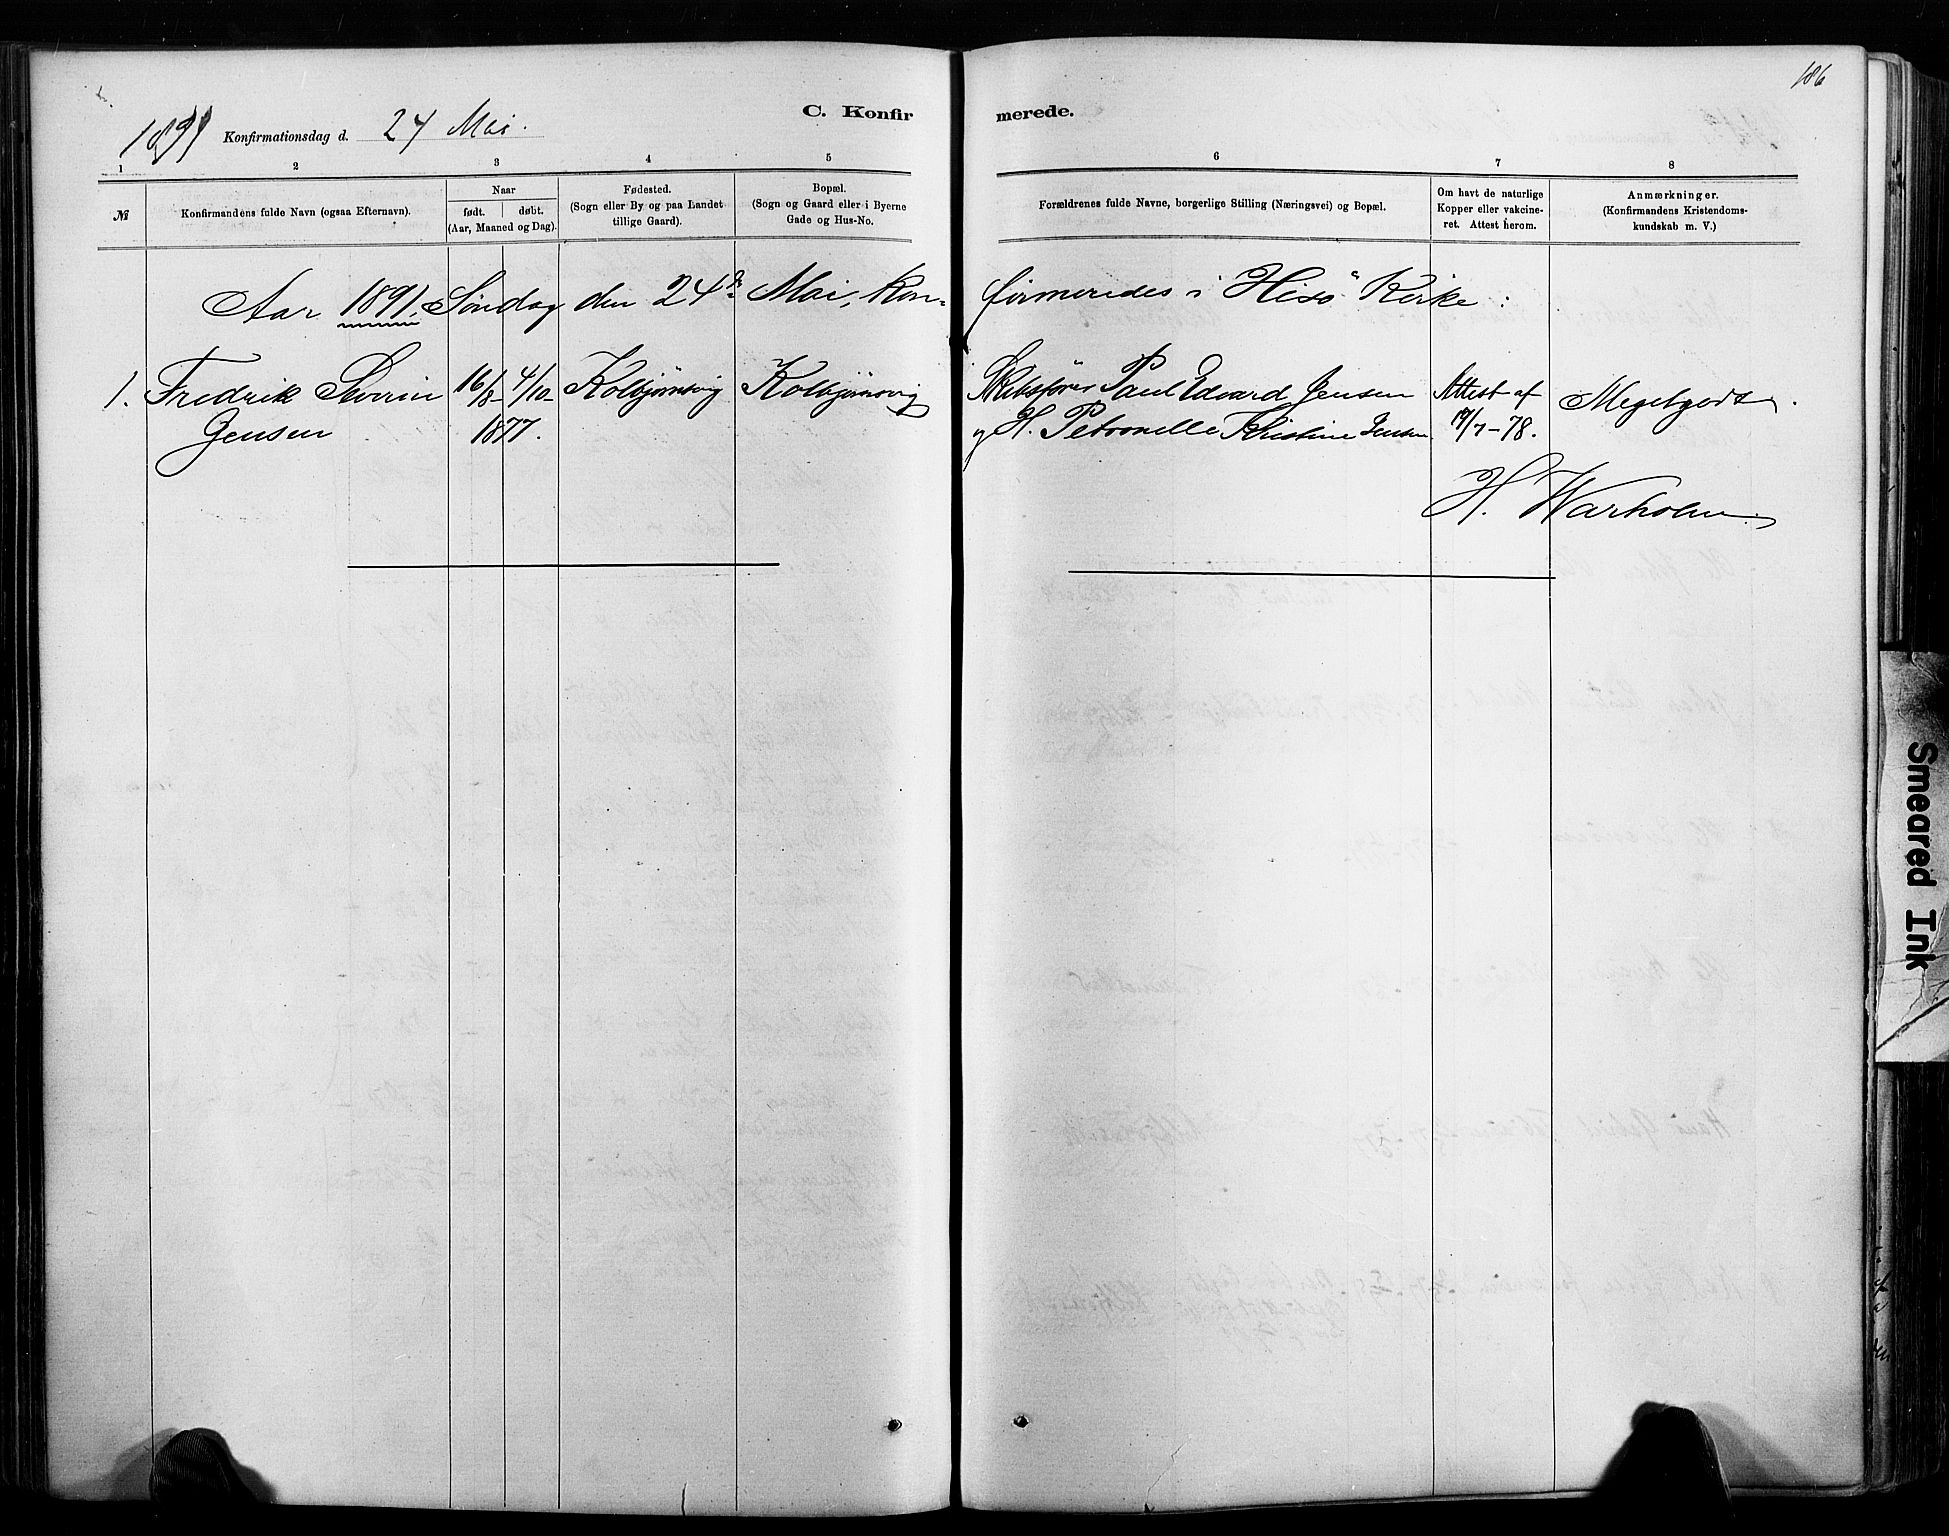 186
1891 Konfirmationsdag d. 24 Mai.
C. Konfir
merede.
1 2 3 4 5 6 7 8
№
Konfirmandens fulde Navn (ogsaa Efternavn).
Naar
født. døbt.
(Aar, Maaned og Dag).
Fødested.
(Sogn eller By og paa Landet
tillige Gaard).
Bopæl.
(Sogn og Gaard eller i Byerne
Gade og Hus-No.
Forældrenes fulde Navne, borgerlige Stilling (Næringsvei) og Bopæl.
Om havt de naturlige
Kopper eller vakcine-
ret. Attest herom.
Anmærkninger.
(Konfirmandens Kristendoms-
kundskab m. V.)
Aar 1891, Søndag den 24de Mai, kon- firmeredes i Hisø Kirke:
1. Fredrik Severin 16/8- 4/10- Kolbjørnsvig Kolbjørnsvig Skibsfører Paul Edvard Jensen Attest af Megetgodt.
Jensen 1877. og H. Petronelle Kristine Jensen /7-78.
H. Warholm.
Smeared Ink